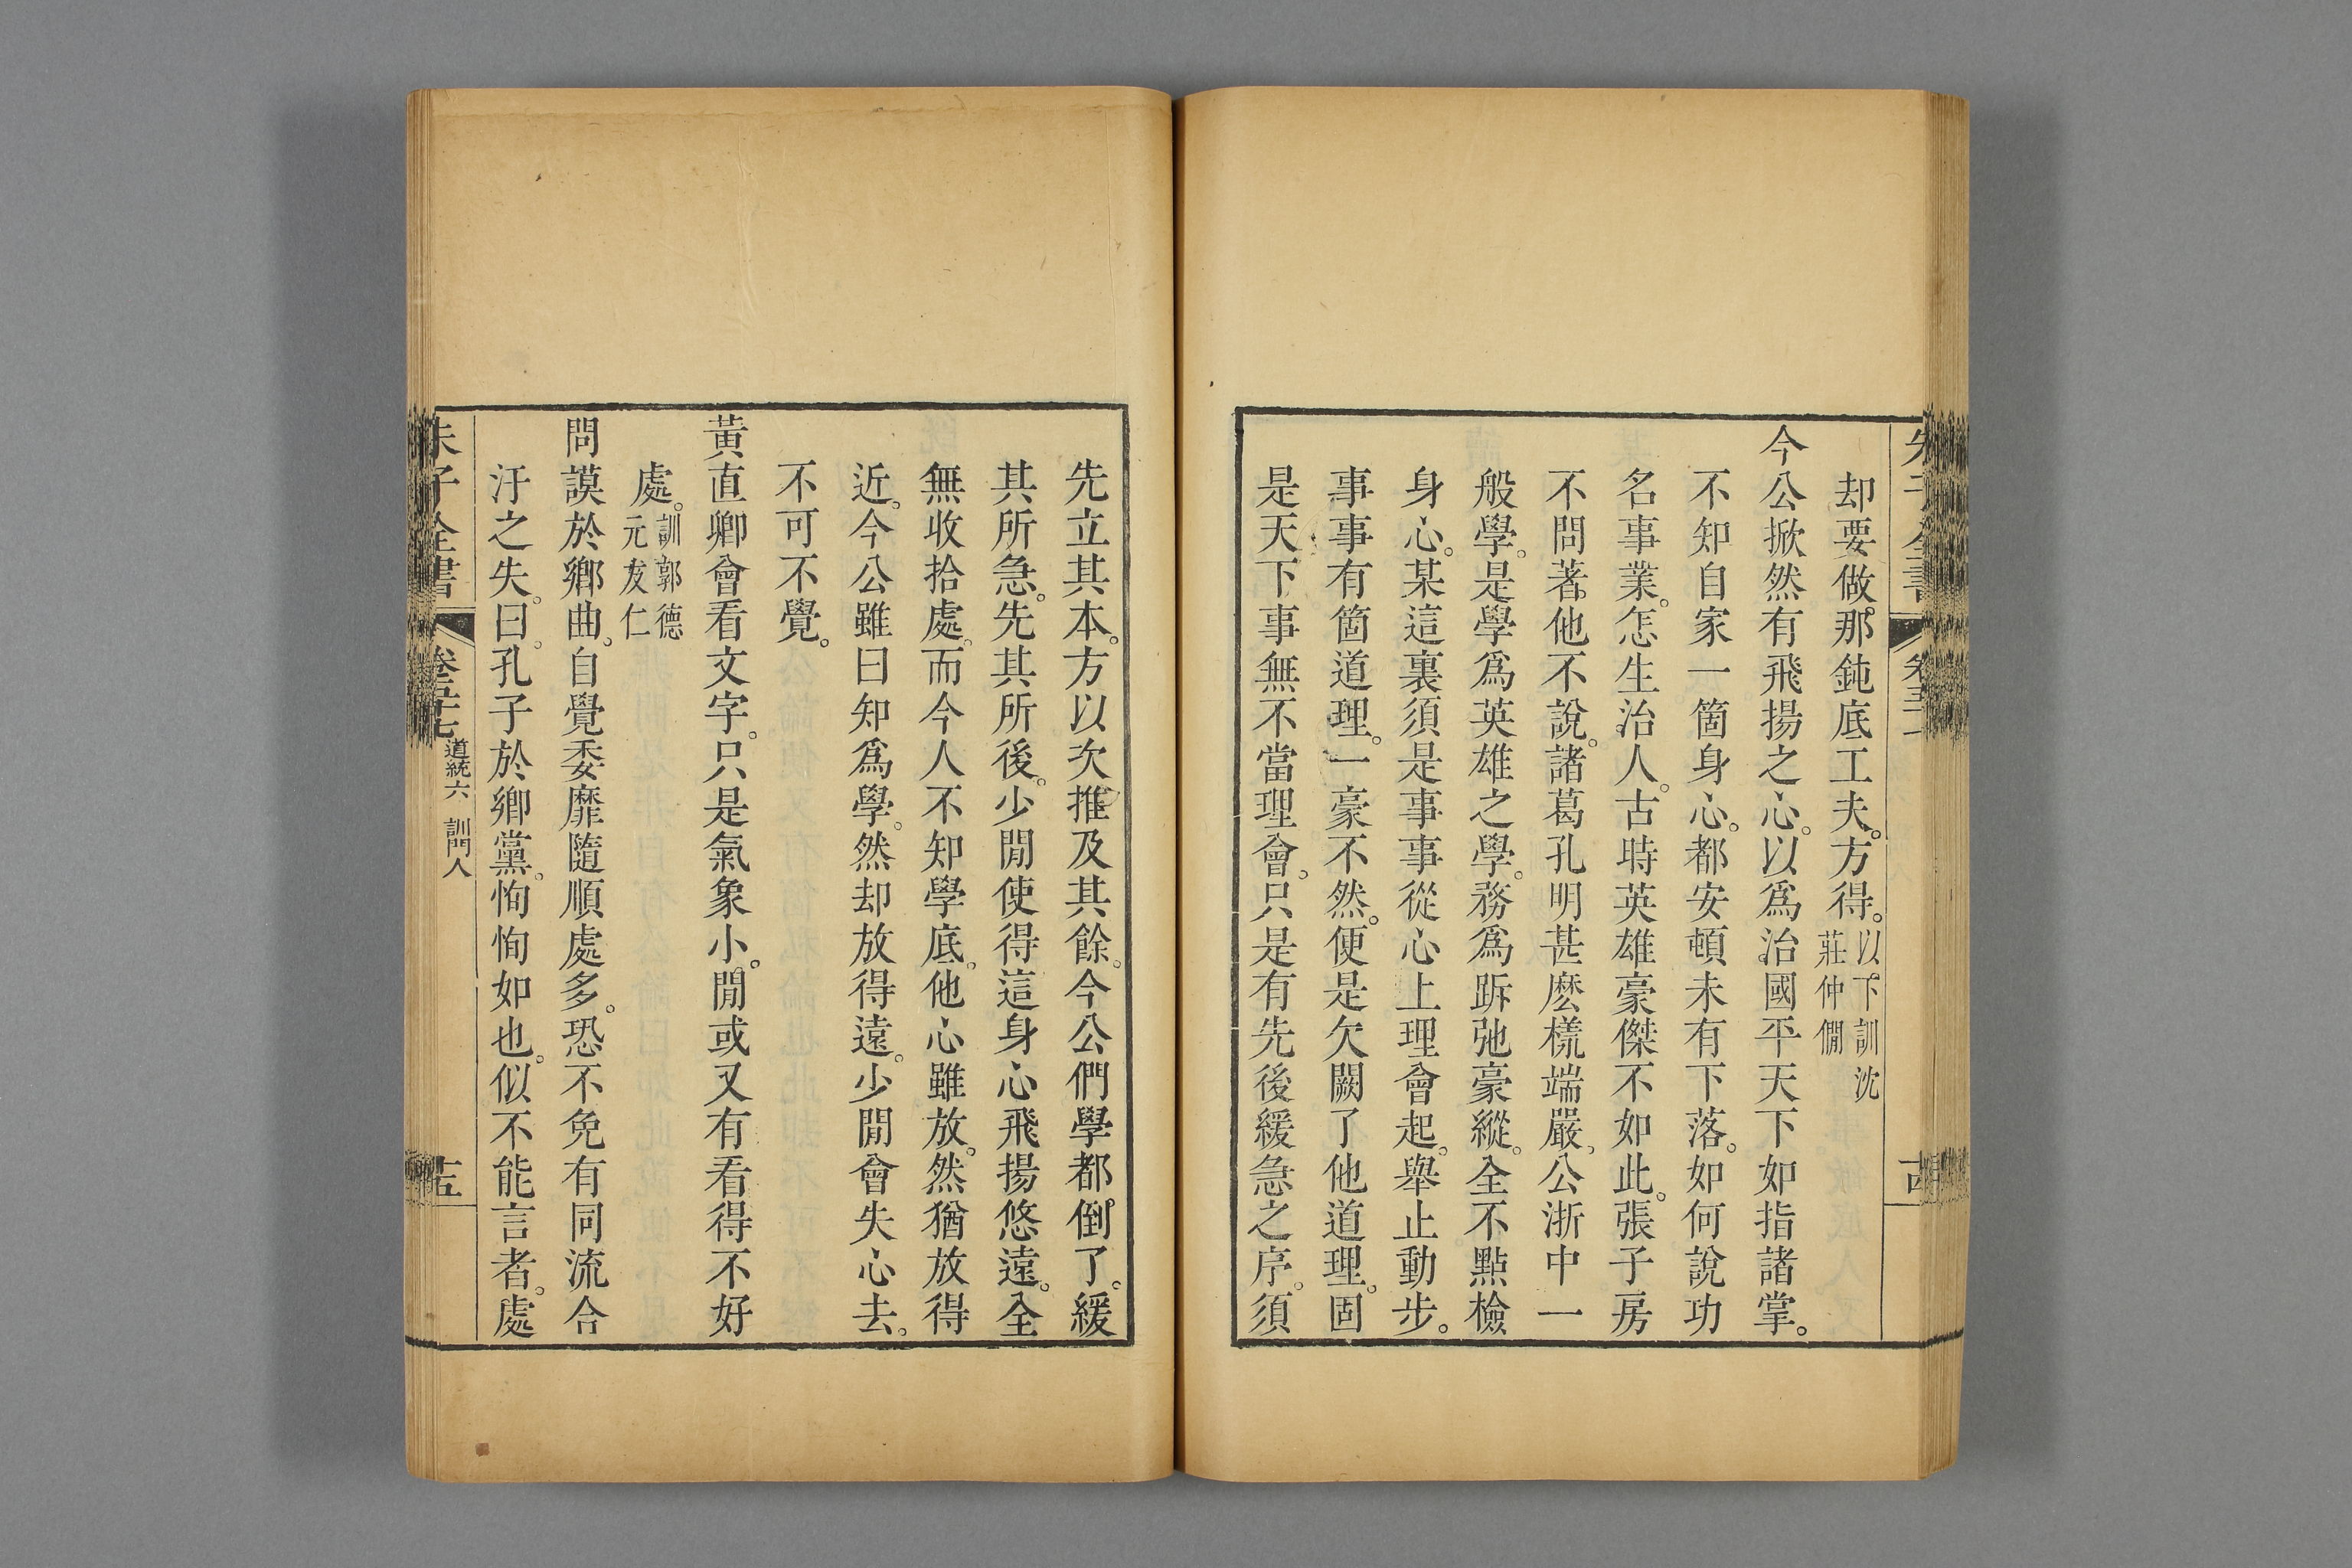 却要做那鈍底工夫。方得。以下訓沈莊仲僩
今公掀然有飛揚之心。以爲治國平天下如指諸掌。
不知自家一箇身心。都安頓未有下落。如何說功
名事業。怎生治人。古時英雄豪傑不如此。張子房
不問著。他不說。諸葛孔明甚麽樣端嚴。公浙中一
般學。是學爲英雄之學。務爲跅弛豪縱。全不點檢
身心。某這裏須是事事從心上理會起。舉止動步。
事事有箇道理。一豪不然。便是欠闕了他道理。固
是天下事無不當理會。只是有先後緩急之序。須
先立其本。方以次推及其餘。今公們學都倒了。緩
其所急。先其所後。少閒使得這身心飛揚悠遠。全
無收拾處。而今人不知學底。他心雖放。然猶放得
近。今公雖曰知爲學。然却放得遠。少閒會失心去。
不可不覺。
黃直卿會看文字。只是氣象小。閒或又有看得不好
處。訓郭德元友仁
問謨於鄉曲。自覺委靡隨順處多。恐不免有同流合
汙之失。曰。孔子於鄉黨。恂恂如也。似不能言者。處
朱子全書 卷五十七 道統六 訓門人 十五